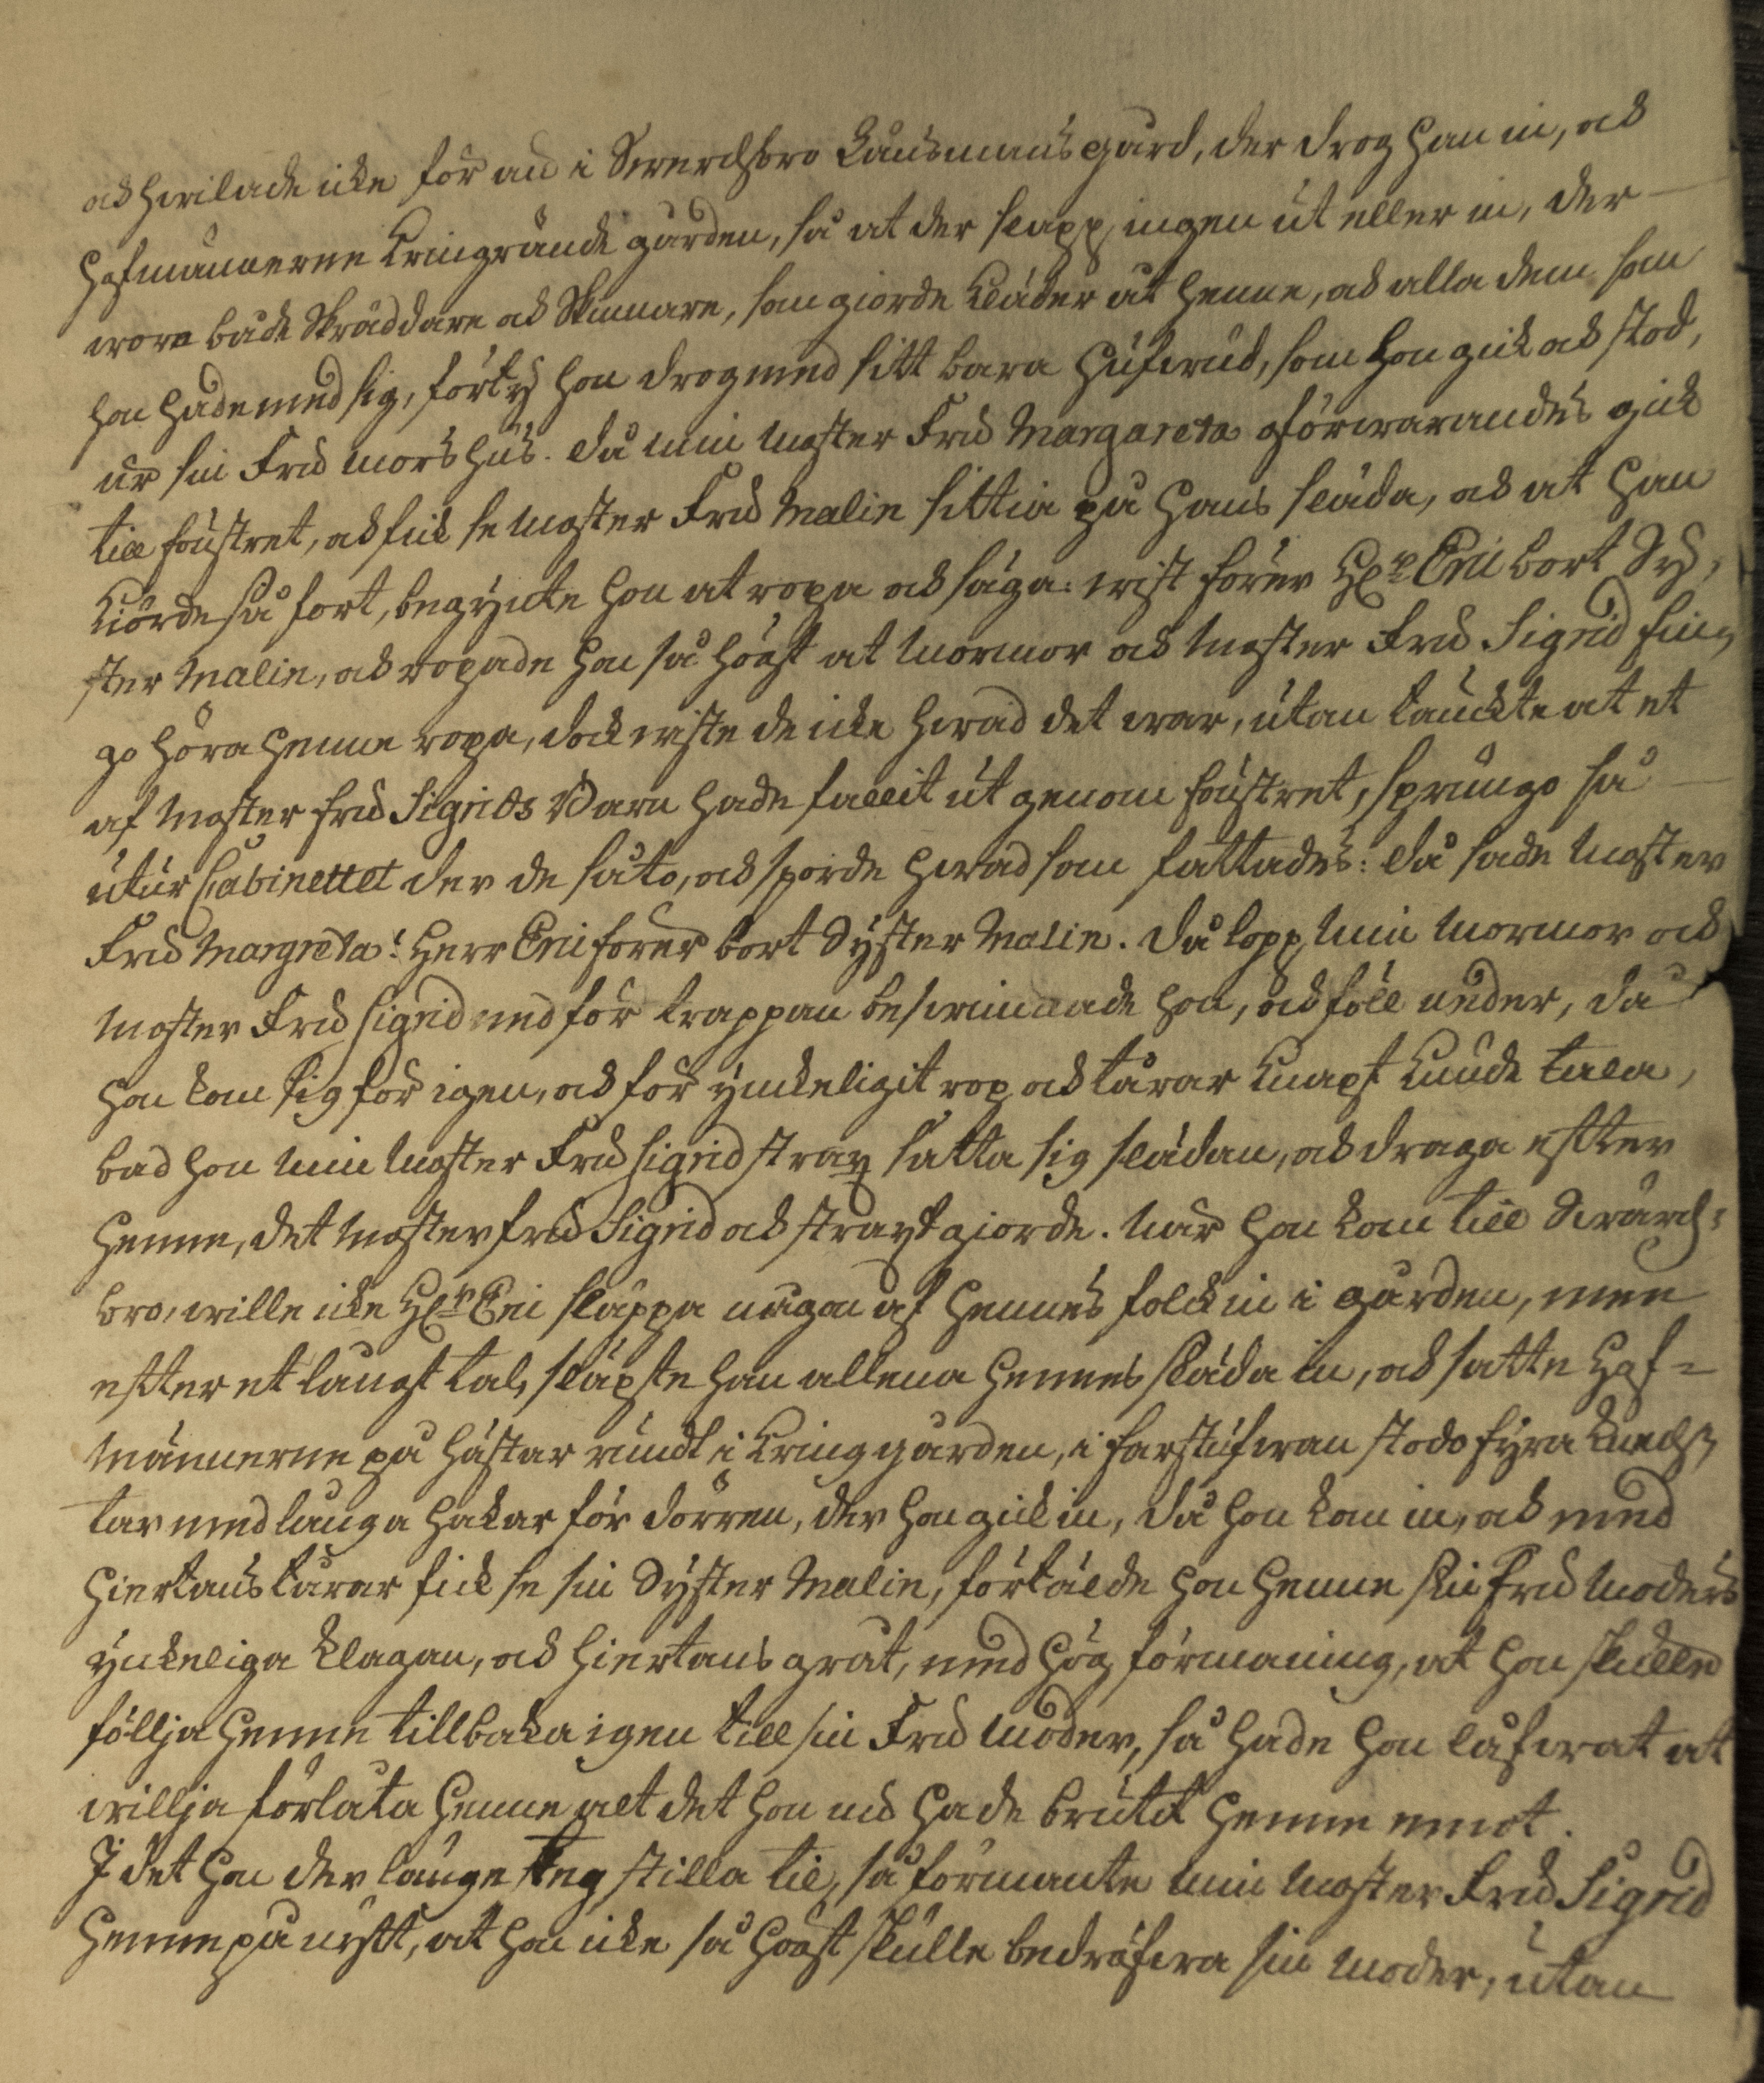 och hwilade icke för än i Swerchsbro Länsmans gård, der drog han in, och
Hofmännerne kringrände gården, så at der slapp ingen ut eller in, der
woro både Skräddare och Skinnare, som giorde kläder åt henne, och alla dem som
hon hade med sig, förty hon drog med sitt bara hufwud, som hon gick och stod,
ur sin Fru mors hus. Då min Moster Fru Margareta oförwarandes gick
till fönstret, och fick se Moster Fru Malin sittia på hans släda, och at han
kiörde så fort, begynte hon at ropa och säga: wist förer Hr Eric bort Sy,
ster Malin, och ropade hon så högt at Mormor och Moster Fru Sigrid fin,
go höra henne ropa, dock wiste de icke hwad det war, utan tänckte at et
af Moster Fru Sigrids Barn hade fallit ut genom fönstret, sprungo så
utur Cabinettet der de såto, och sporde hwad som fattades: då sade Moster
Fru Margreta: Herr Eric förer bort Syster Malin. då lopp min Mormor och
Moster Fru Sigrid ned för trappan beswimmade hon, och föll under, då
hon kom sig för igen, och för ynckeligit rop och tårar knapt kunde tala,
bad hon min Moster Fru Sigrid strax sätta sig slädan, och draga effter
henne, det Moster Fru Sigrid och straxt giorde. När hon kom till Swärch:
bro, wille icke Hr Eric släppa någon af hennes folck in i gården, men
effter et långt tal, släpte han allena hennes släda in, och satte Hof=
Männerne på hästar rundt i kring gården, i farstufwan stodo fyra knech,
tar med långa hakar för dörren, der hon gick in, då hon kom in, och med
hiertans tårar fick se sin Syster Malin, förtälde hon henne sin Fru Moders
ynckeliga klagan, och hiertans gråt, med hög förmaning, at hon skulle
föllja henne tillbaka igen till sin Fru Moder, så hade hon låfwat at
willja förlåta henne alt det hon nu hade brutit henne emot.
I det hon der länge teg stilla til, så förmante min Moster Fru Sigrid
henne på nytt, at hon icke så högt skulle bedröfwa sin Moder, utan